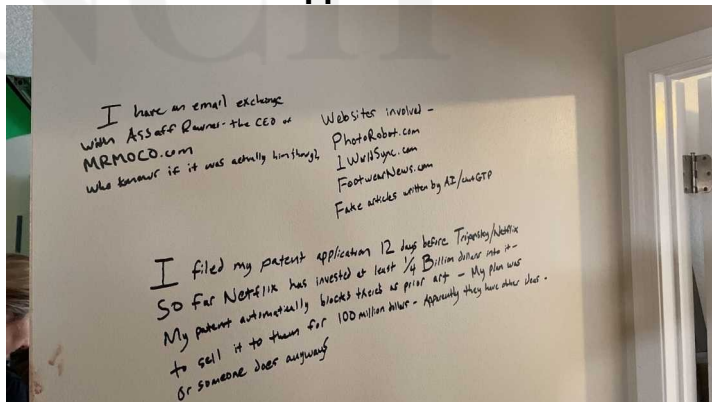 I have an email exchange
with Assaff Rawner - the CEO of
MRMOCO.com
who knows if it was actually him though,
Websites involved -
PhotoRobot.com
1WorldSync.com
FootwearNews.com
Fake articles written by AI/chatGTP
I filed my patent application 12 days before /Netflix
So far Netflix has invested at least 1/4 Billion dollars into it -
My patent automatically blocks theirs as prior art - My plan was
to sell it to them for 100 million dollars - Apparently they have other ideas -
or someone does anyways